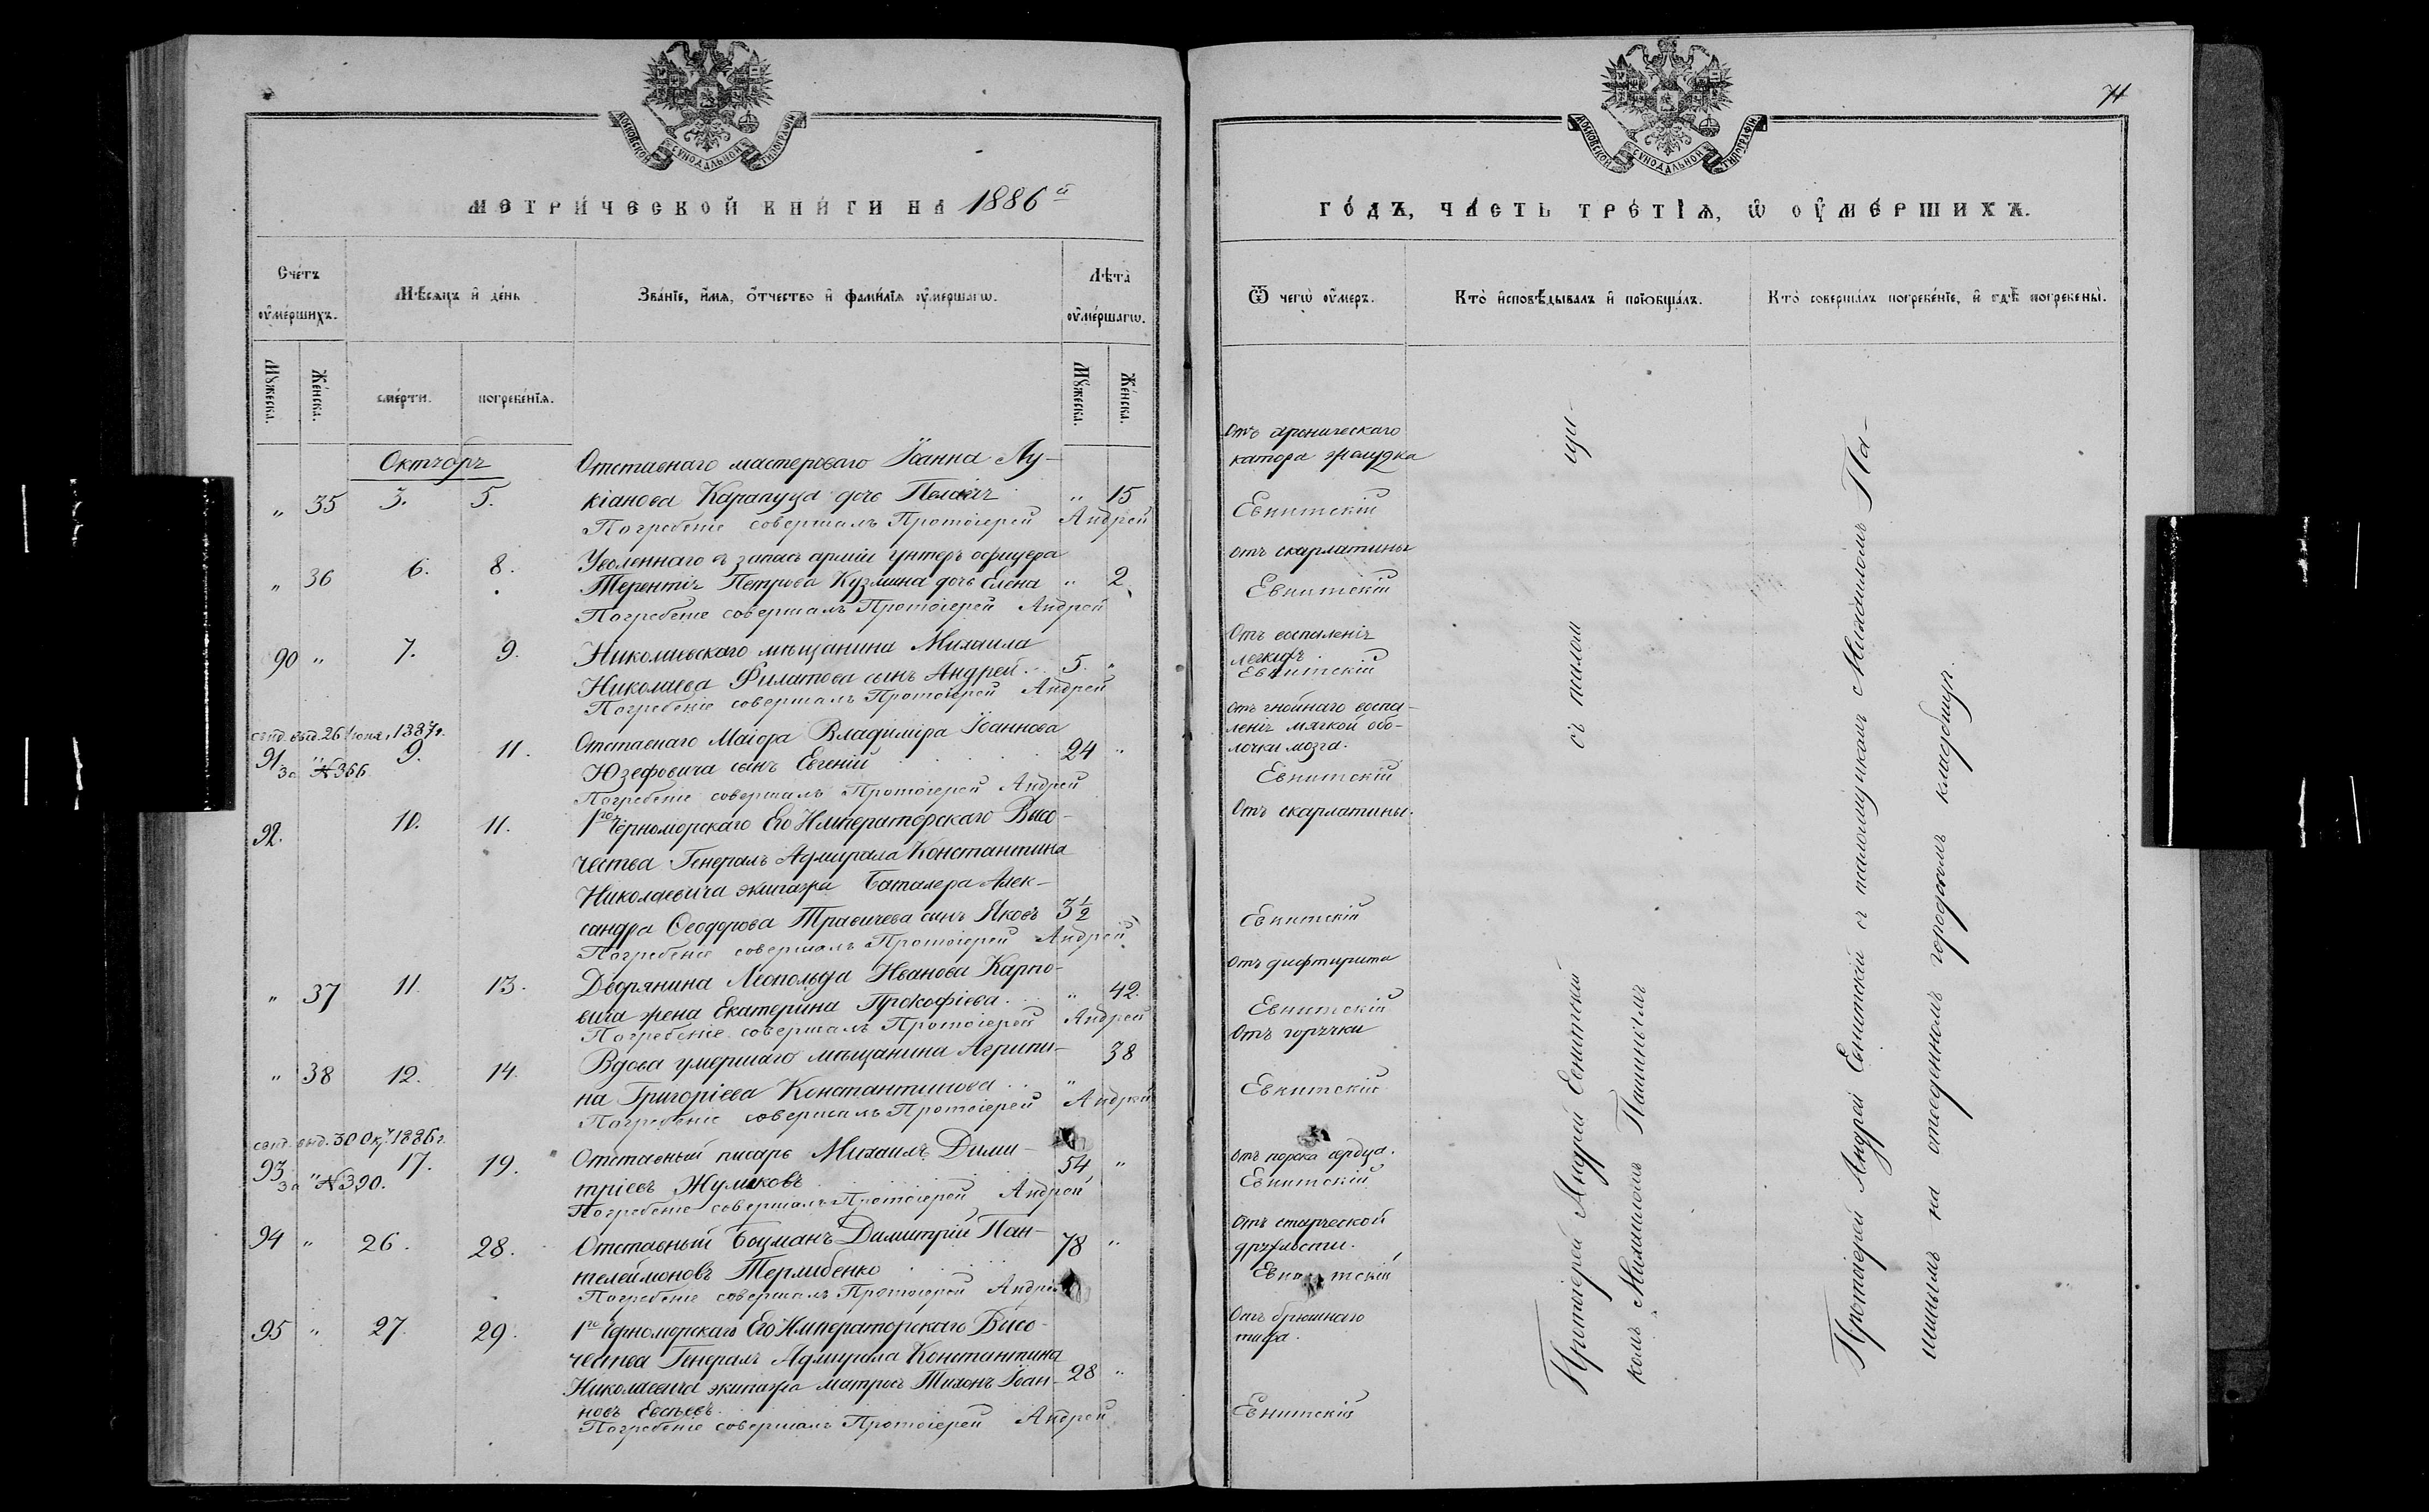 МОСКОВСКОЙ СѴНОДАЛЬНОЙ ТИПОГРАФІИ
МЕТРИ́ЧЕСКОЙ КНИ́ГИ НА 1886й
Сче́тъ ᲂу҆ме́ршихъ.
Мѣ́сяцъ и҆ де́нь
Зва́нїе, и҆́мѧ, ѻ҆́тчество и҆ фами́лїѧ ᲂу҆ме́ршагѡ.
Лѣта̀ ᲂу҆ме́ршагѡ.
Мꙋ́жеска.
Же́нска.
сме́рти.
погребе́нїѧ.
Мꙋ́жеска.
Же́нска.
Октября
Отставнаго мастероваго Іоанна Лу-
„ 35 3. 5. кіанова Карапуза дочь Пелагія „ 15
Погребеніе совершалъ Протоіерей Андрей
Уволеннаго въ запасъ арміи унтеръ офицера
„ 36 6. 8. Терентія Петрова Кузмина дочь Елена „ 2
Погребеніе совершалъ Протоіерей Андрей
90 „ 7. 9. Николаевскаго мѣщанина Михаила
Николаева Филатова сынъ Андрей 5. „
Погребеніе совершалъ Протоіерей Андрей
свид. выд. 26 Іюня 1887г.
91 „ 9. 11. Отставнаго Маіора Владиміра Іоаннова
за №366 Юзефовича сынъ Евгеній 24 „
Погребеніе совершалъ Протоіерей Андрей
92. 10. 11. 1го Черноморскаго Его Императорскаго Высо-
чества Генералъ Адмирала Константина
Николаевича экипажа Баталера Алек-
сандра Ѳеодорова Травичева сынъ Яковъ 3½
Погребеніе совершалъ Протоіерей Андрей
„ 37 11. 13. Дворянина Леопольда Иванова Карпо-
вича жена Екатерина Прокофіева „ 42.
Погребеніе совершалъ Протоіерей Андрей
„ 38 12. 14. Вдова умершаго мѣщанина Агрипи- 38
на Григоріева Константинова „
Погребеніе совершалъ Протоіерей Андрей
свид. выд. 30 Окт. 1886г.
93. „ 17. 19. Отставный писарь Михаилъ Дими-
за №390. тріевъ Жуликовъ 54 „
Погребеніе совершалъ Протоіерей Андрей
94 „ 26. 28. Отставный Боцманъ Димитрій Пан- 78 „
телеймоновъ
Погребеніе совершалъ Протоіерей Андрей
95 „ 27. 29. 1го Черноморскаго Его Императорскаго Высо-
чества Генералъ Адмирала Константина
Николаевича экипажа матросъ Тихонъ Іоан- 28 „
новъ Евсѣевъ.
Погребеніе совершалъ Протоіерей Андрей
71
МОСКОВСКОЙ СѴНОДАЛЬНОЙ ТИПОГРАФІИ
ГО́ДЪ, ЧА́СТЬ ТРЕ́ТІѦ, Ѡ҆ ОУ҆МЕ́РШИХЪ.
Ѿ чегѡ̀ ᲂу҆́меръ.
Кто̀ и҆сповѣ́дывалъ и҆ прїобща́лъ.
Кто̀ соверша́лъ погребе́нїе, и҆ гдѣ̀ погребены̀.
Отъ хроническаго
катара желудка
Евнитскій
отъ скарлатины
Евнитскій
Отъ воспаленія
легкихъ.
Евнитскій
отъ гнойнаго воспа-
ленія мягкой обо-
лочки мозга.
Евнитскій
Отъ скарлатины.
Евнитскій
Отъ дифтерита
Евнитскій
Отъ горячки
Евнитскій
отъ порока сердца.
Евнитскій
Отъ старческой
дряхлости.
Евнитскій
Отъ брюшнаго
тифа.
Евнитскій
Протоіерей Андрей Евнитскій съ псаломщи-
комъ Михаиломъ Пашинымъ
Протоіерей Андрей Евнитскій съ псаломщикомъ Михаиломъ Па-
шинымъ на отведенномъ городскомъ кладбищѣ.